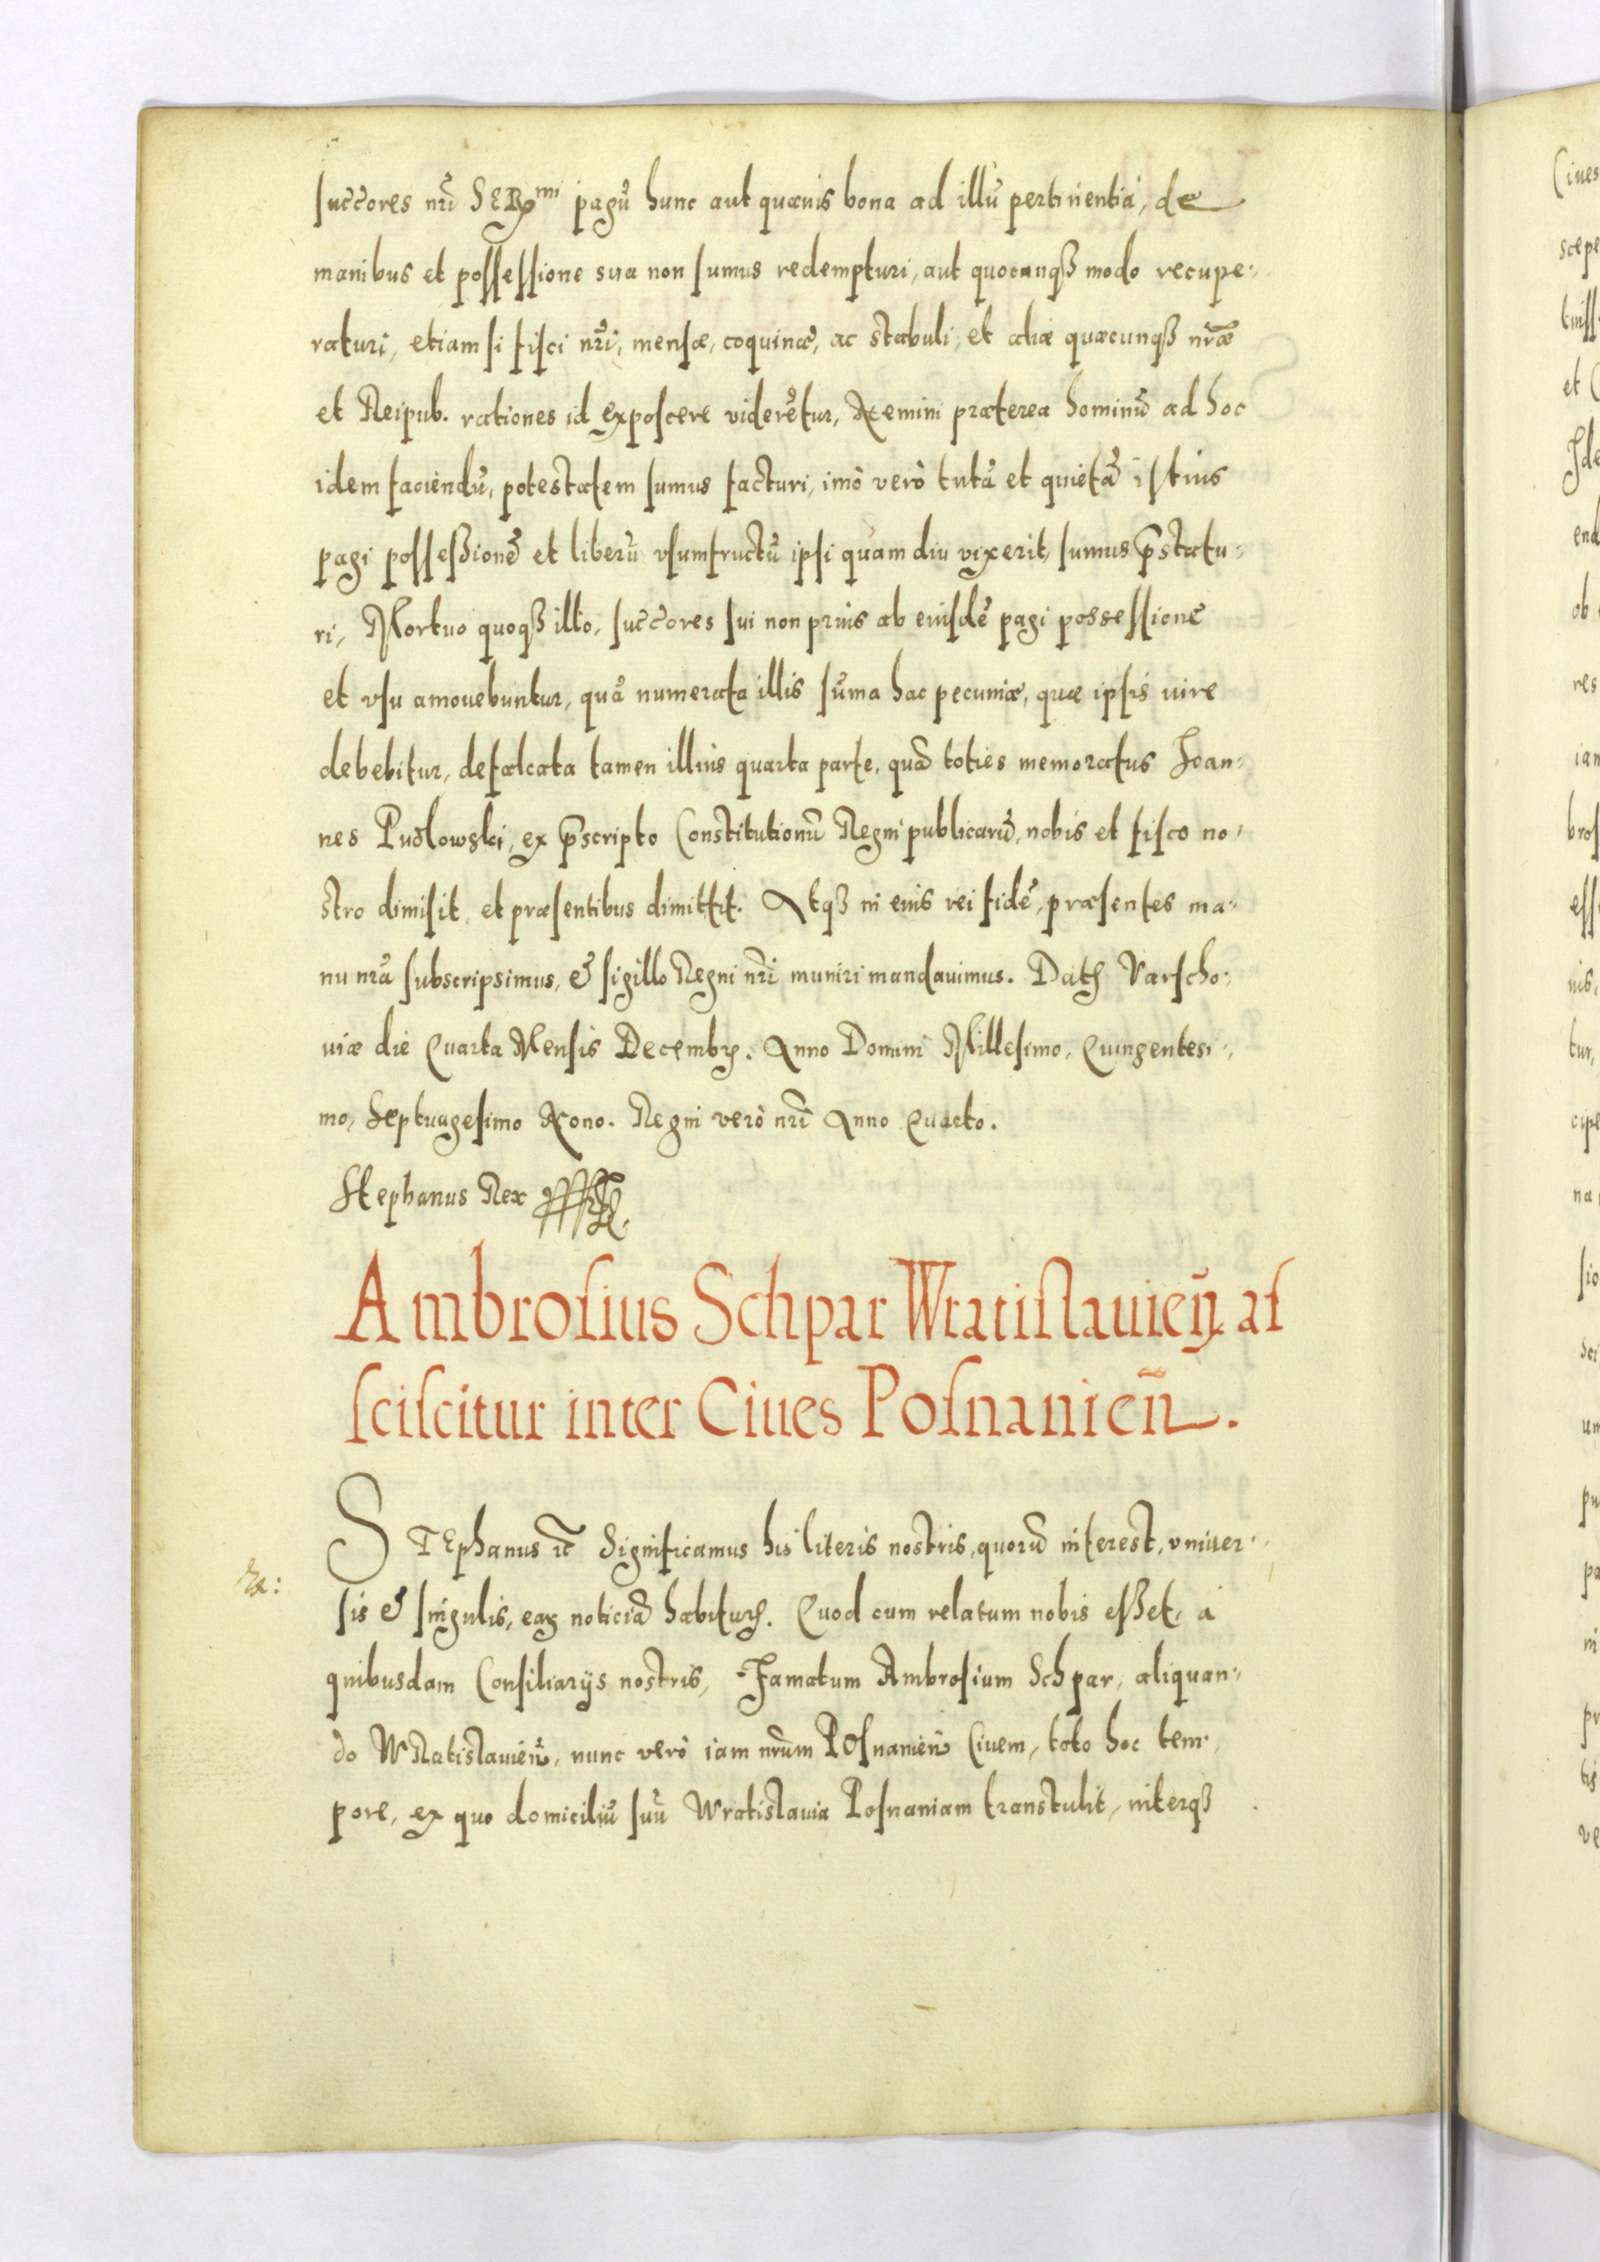 succ̃ores nr̃i SERmi pagũ hunc aut quæuis bona ad illũ pertinentia, de
manibus et possessione sua non sumus redempturi, aut quocunqꝫ modo recupe-
raturi, etiam si fisci nr̃i, mensæ, coquinæ, ac stabuli, et aliæ quæcunqꝫ nr̃æ
et Reipub. rationes id exposcere viderẽtur, Nemini præterea hominũ ad hoc
idem faciendũ, potestatem sumus facturi, imò verò tutã et quietã istius
pagi possessionẽ et liberũ vsumfructũ ipsi quam diu vixerit, sumus p̃statu-
ri, Mortuo quoqꝫ illo, succ̃ores sui non prius ab eiusdẽ pagi possessione
et vsu amouebuntur, quã numerata illis sũma hac pecuniæ, quæ ipsis iure
debebitur, defalcata tamen illius quarta parte, quã toties memoratus Joan-
nes Pudlowski, ex p̃scripto Constitutionũ Regni publicarũ, nobis et fisco no-
stro dimisit et præsentibus dimittit. Atqꝫ in eius rei fidẽ, præsentes ma-
nu nr̃a subscripsimus, & sigillo Regni nr̃i muniri mandauimus. Datꝭ Varscho-
uiæ die Quarta Mensis Decembrꝭ. Anno Domini Millesimo, Quingentesi-
mo, Septuagesimo Nono. Regni verò nr̃i Anno Quarto.
Stephanus Rex
Ambrosius Schpar Wratislauieñ as
sciscitur inter Ciues Posnanieñ.
STEphanus ꝛc̃ Significamus his literis nostris, quorũ interest, vniuer-
sis & singulis, eaꝝ noticiã habiturꝭ. Quod cum relatum nobis esset, a
quibusdam Consiliarijs nostris, Famatum Ambrosium Schpar, aliquan-
do WRatislauieñ, nunc verò iam nr̃um POsnanieñ Ciuem, toto hoc tem-
pore, ex quo domiciliũ suũ Wratislauia Posnaniam transtulit, interqꝫ